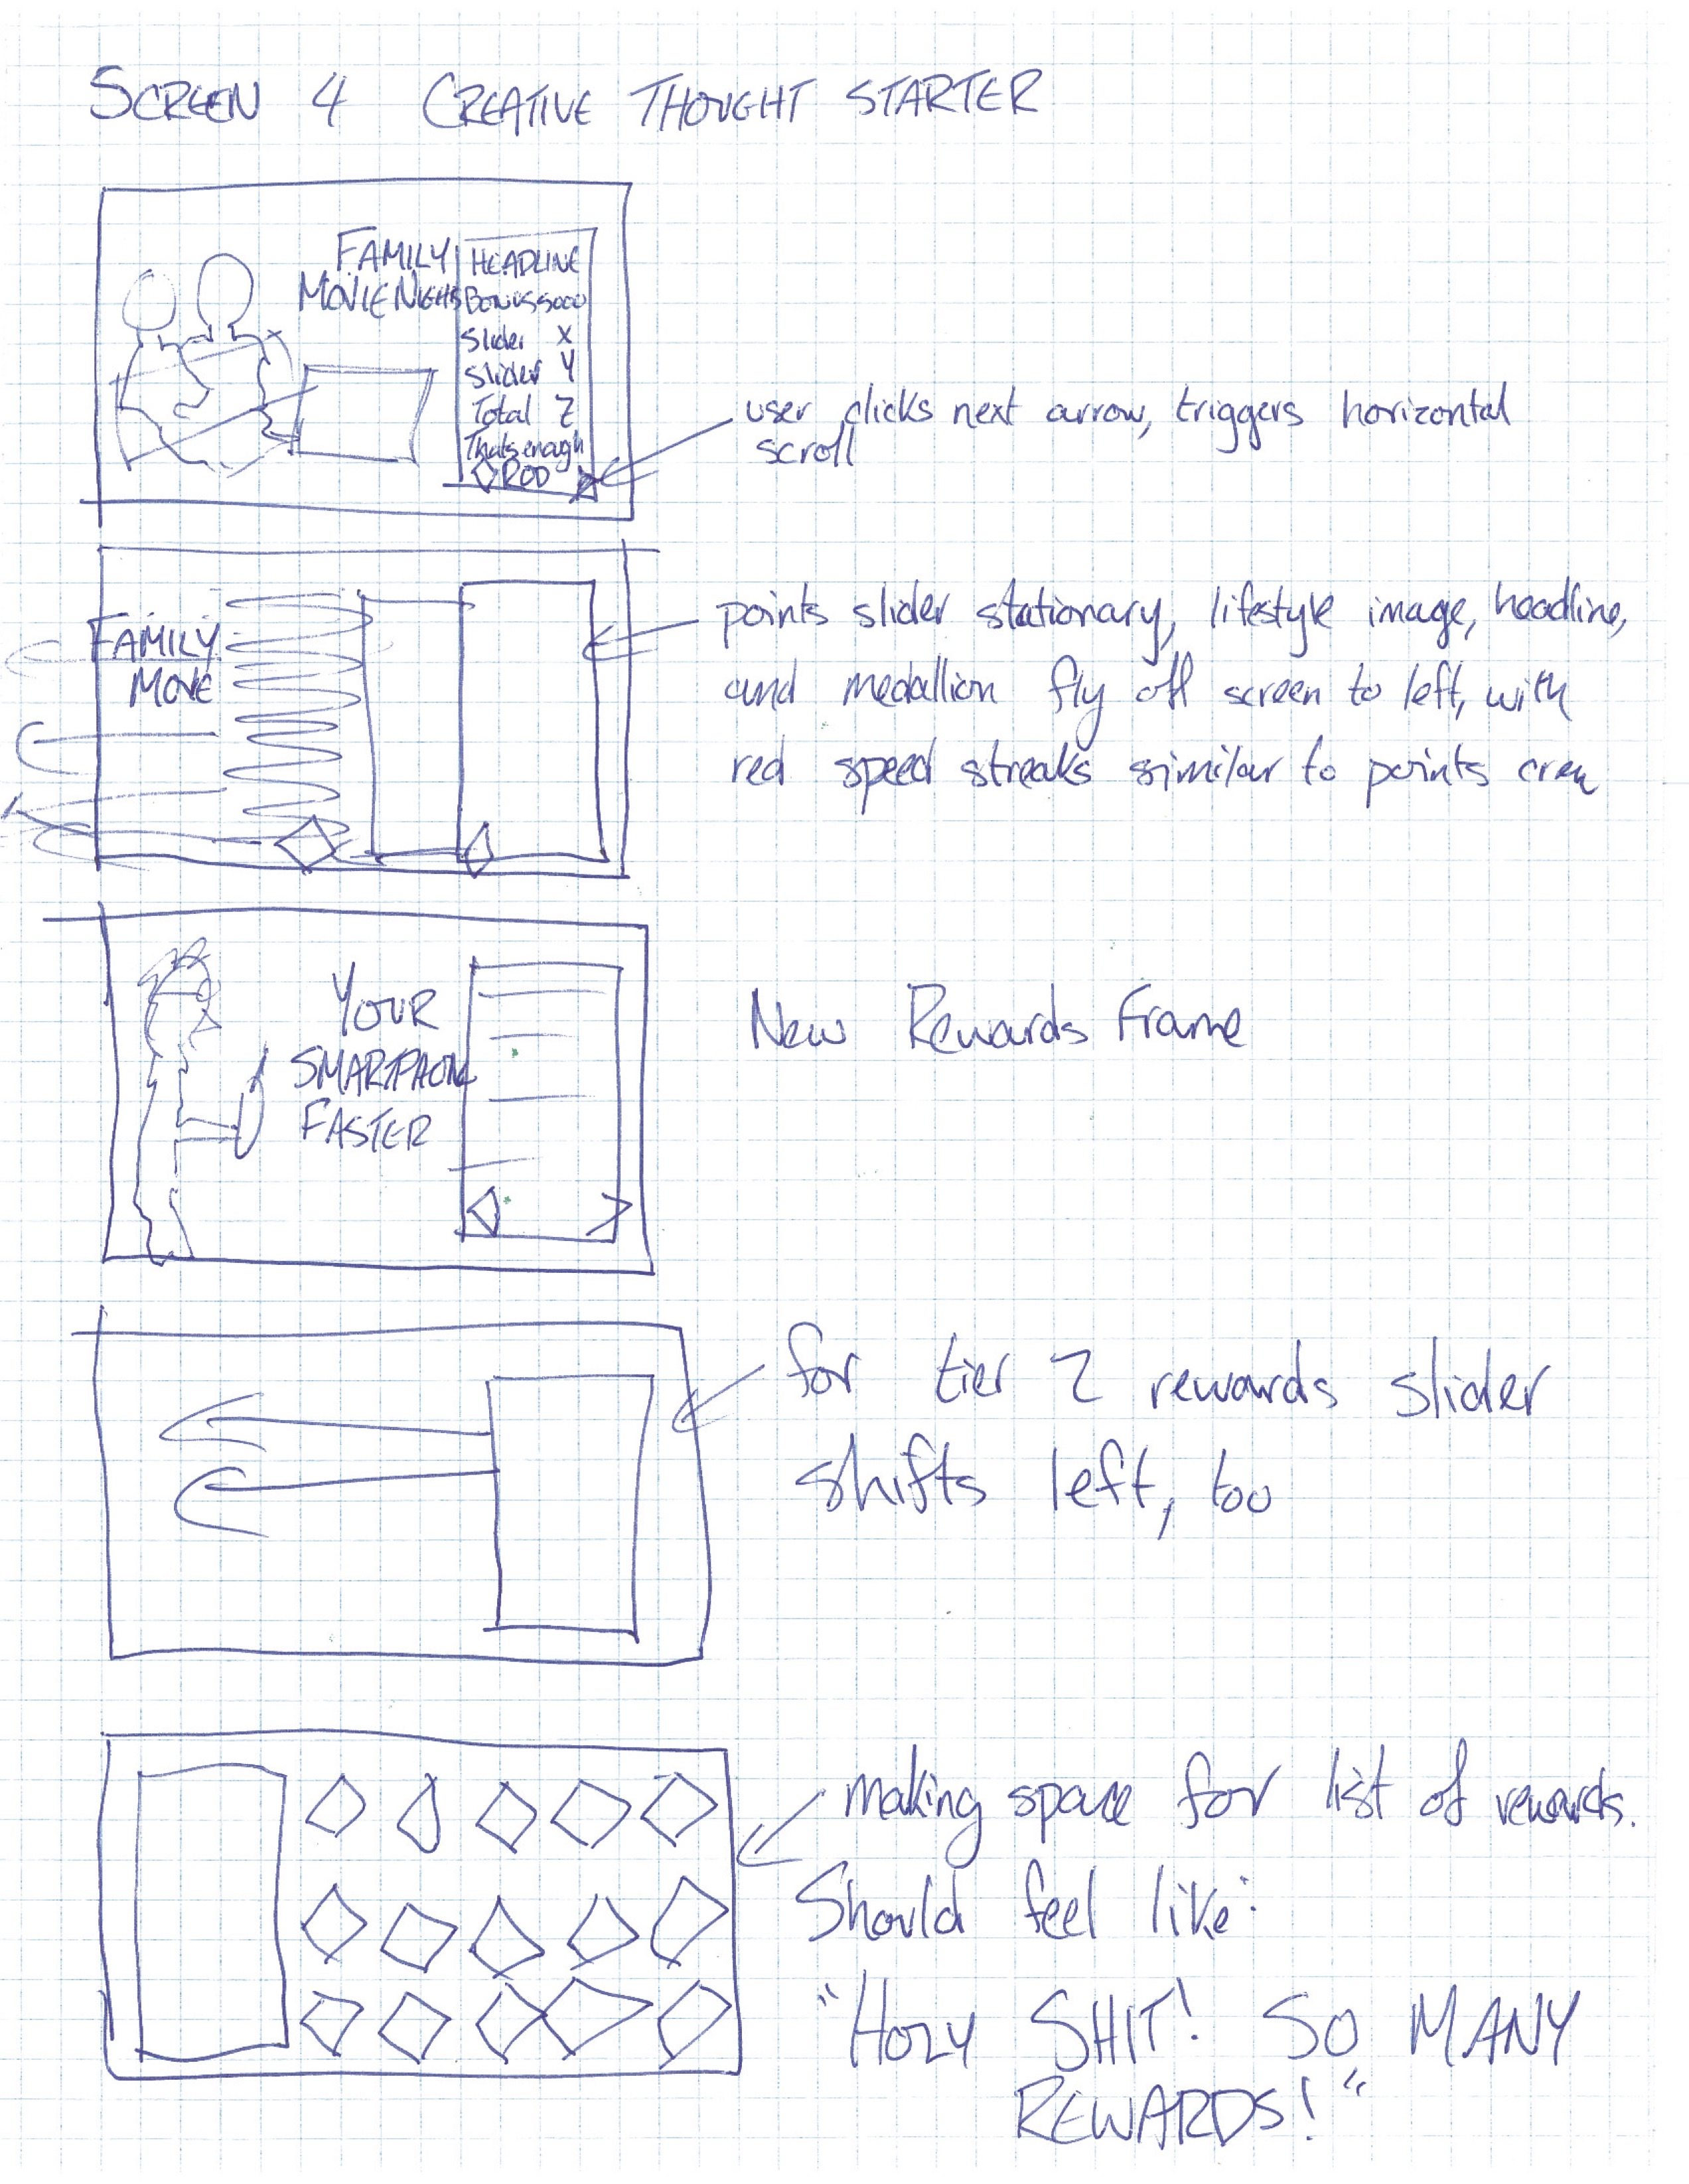 SCREEN 4 CREATIVE THOUGHT STARTER
FAMILY
MOVIE NIGHT
HEADLINE
Bonus 5000
Slider X
Slider Y
Total Z
Thats enough
ROD
user clicks next arrow, triggers horizontal
scroll
FAMILY
MOVIE
points slider stationary, lifestyle image, headline,
and medallion fly off screen to left, with
red speed streaks similar to points
YOUR
SMARTPHONE
FASTER
New Rewards Frame
for tier 2 rewards slider
shifts left, too
making space for list of rewards.
Should feel like:
"HOLY SHIT! SO MANY
REWARDS!"